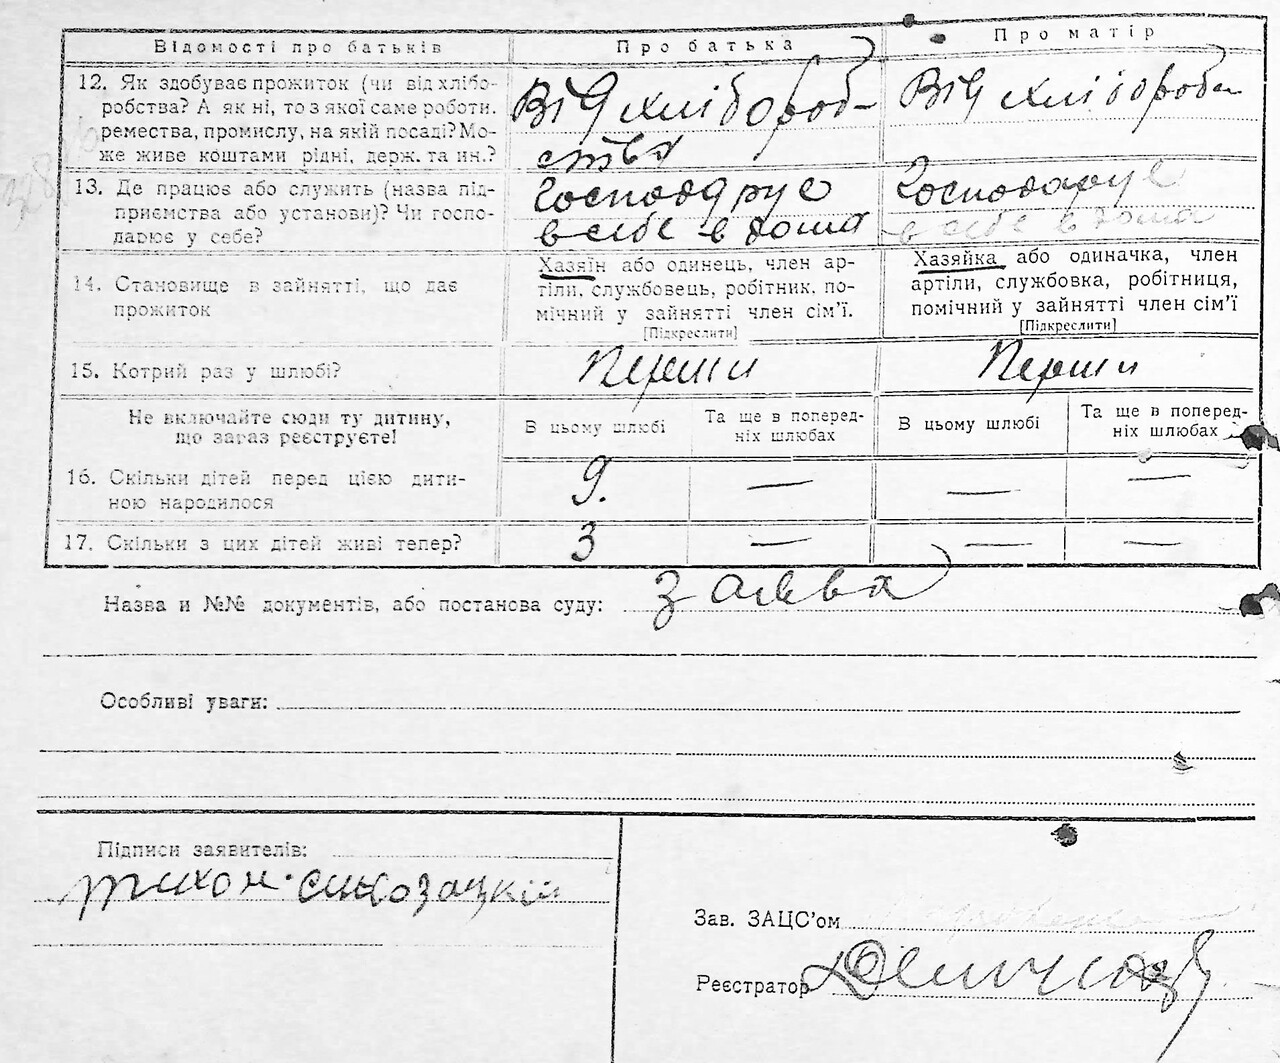 Відомості про батьків
Про батька
Про матір
12. Як здобуває прожиток (чи від хлібо-
робства? А як ні, то з якої саме роботи.
ремества, промислу, на якій посаді? Мо-
же живе коштами рідні, держ. та ин.?
Від хлібороб-
ства
Від хлібороб
13. Де працює або служить (назва під-
приємства або установи)? Чи госпо-
дарює у себе?
Господарує
в себе в дома
Господарує
в себе в дома
14. Становище в зайнятті, що дає
прожиток
Хазяїн або одинець, член ар-
тілі, службовець, робітник, по-
мічний у зайнятті член сім'ї.
[Підкреслити]
Хазяйка або одиначка, член
артіли, службовка, робітниця,
помічний у зайнятті член сім'ї
[Підкреслити]
15. Котрий раз у шлюбі?
Перши
Перши
Не включайте сюди ту дитину,
що зараз реєструєте!
В цьому шлюбі
Та ще в поперед-
ніх шлюбах
В цьому шлюбі
Та ще в поперед-
ніх шлюбах
16. Скільки дітей перед цією дити-
ною народилося
9. — — —
17. Скільки з цих дітей живі тепер?
3 — — —
Назва и №№ документів, або постанова суду: заява
Особливі уваги:
Підписи заявителів:
тихон
Зав. ЗАЦС'ом
Реєстратор